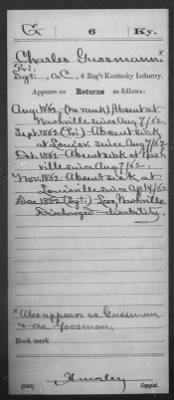 G | 6 | Ky.
Charles Gussmann x
Pri.
Sgt., Co. C, 6 Reg't Kentucky Infantry.
Appears on Returns as follows:
Aug. 1862 (no rank) Absent at
Nashville since Aug 7/62
Sept. 1862 (Pri) Absent sick
at Louisv. since Aug 7/62
Oct. 1862 Absent sick at Nash
ville since Aug 7/62.
Nov. 1862 Absent sick at
Louisville since
Dec 1862 (Sgt) Nashville
Discharged disability.
x Also appears as Gussman
& as
Book mark
Copyist.